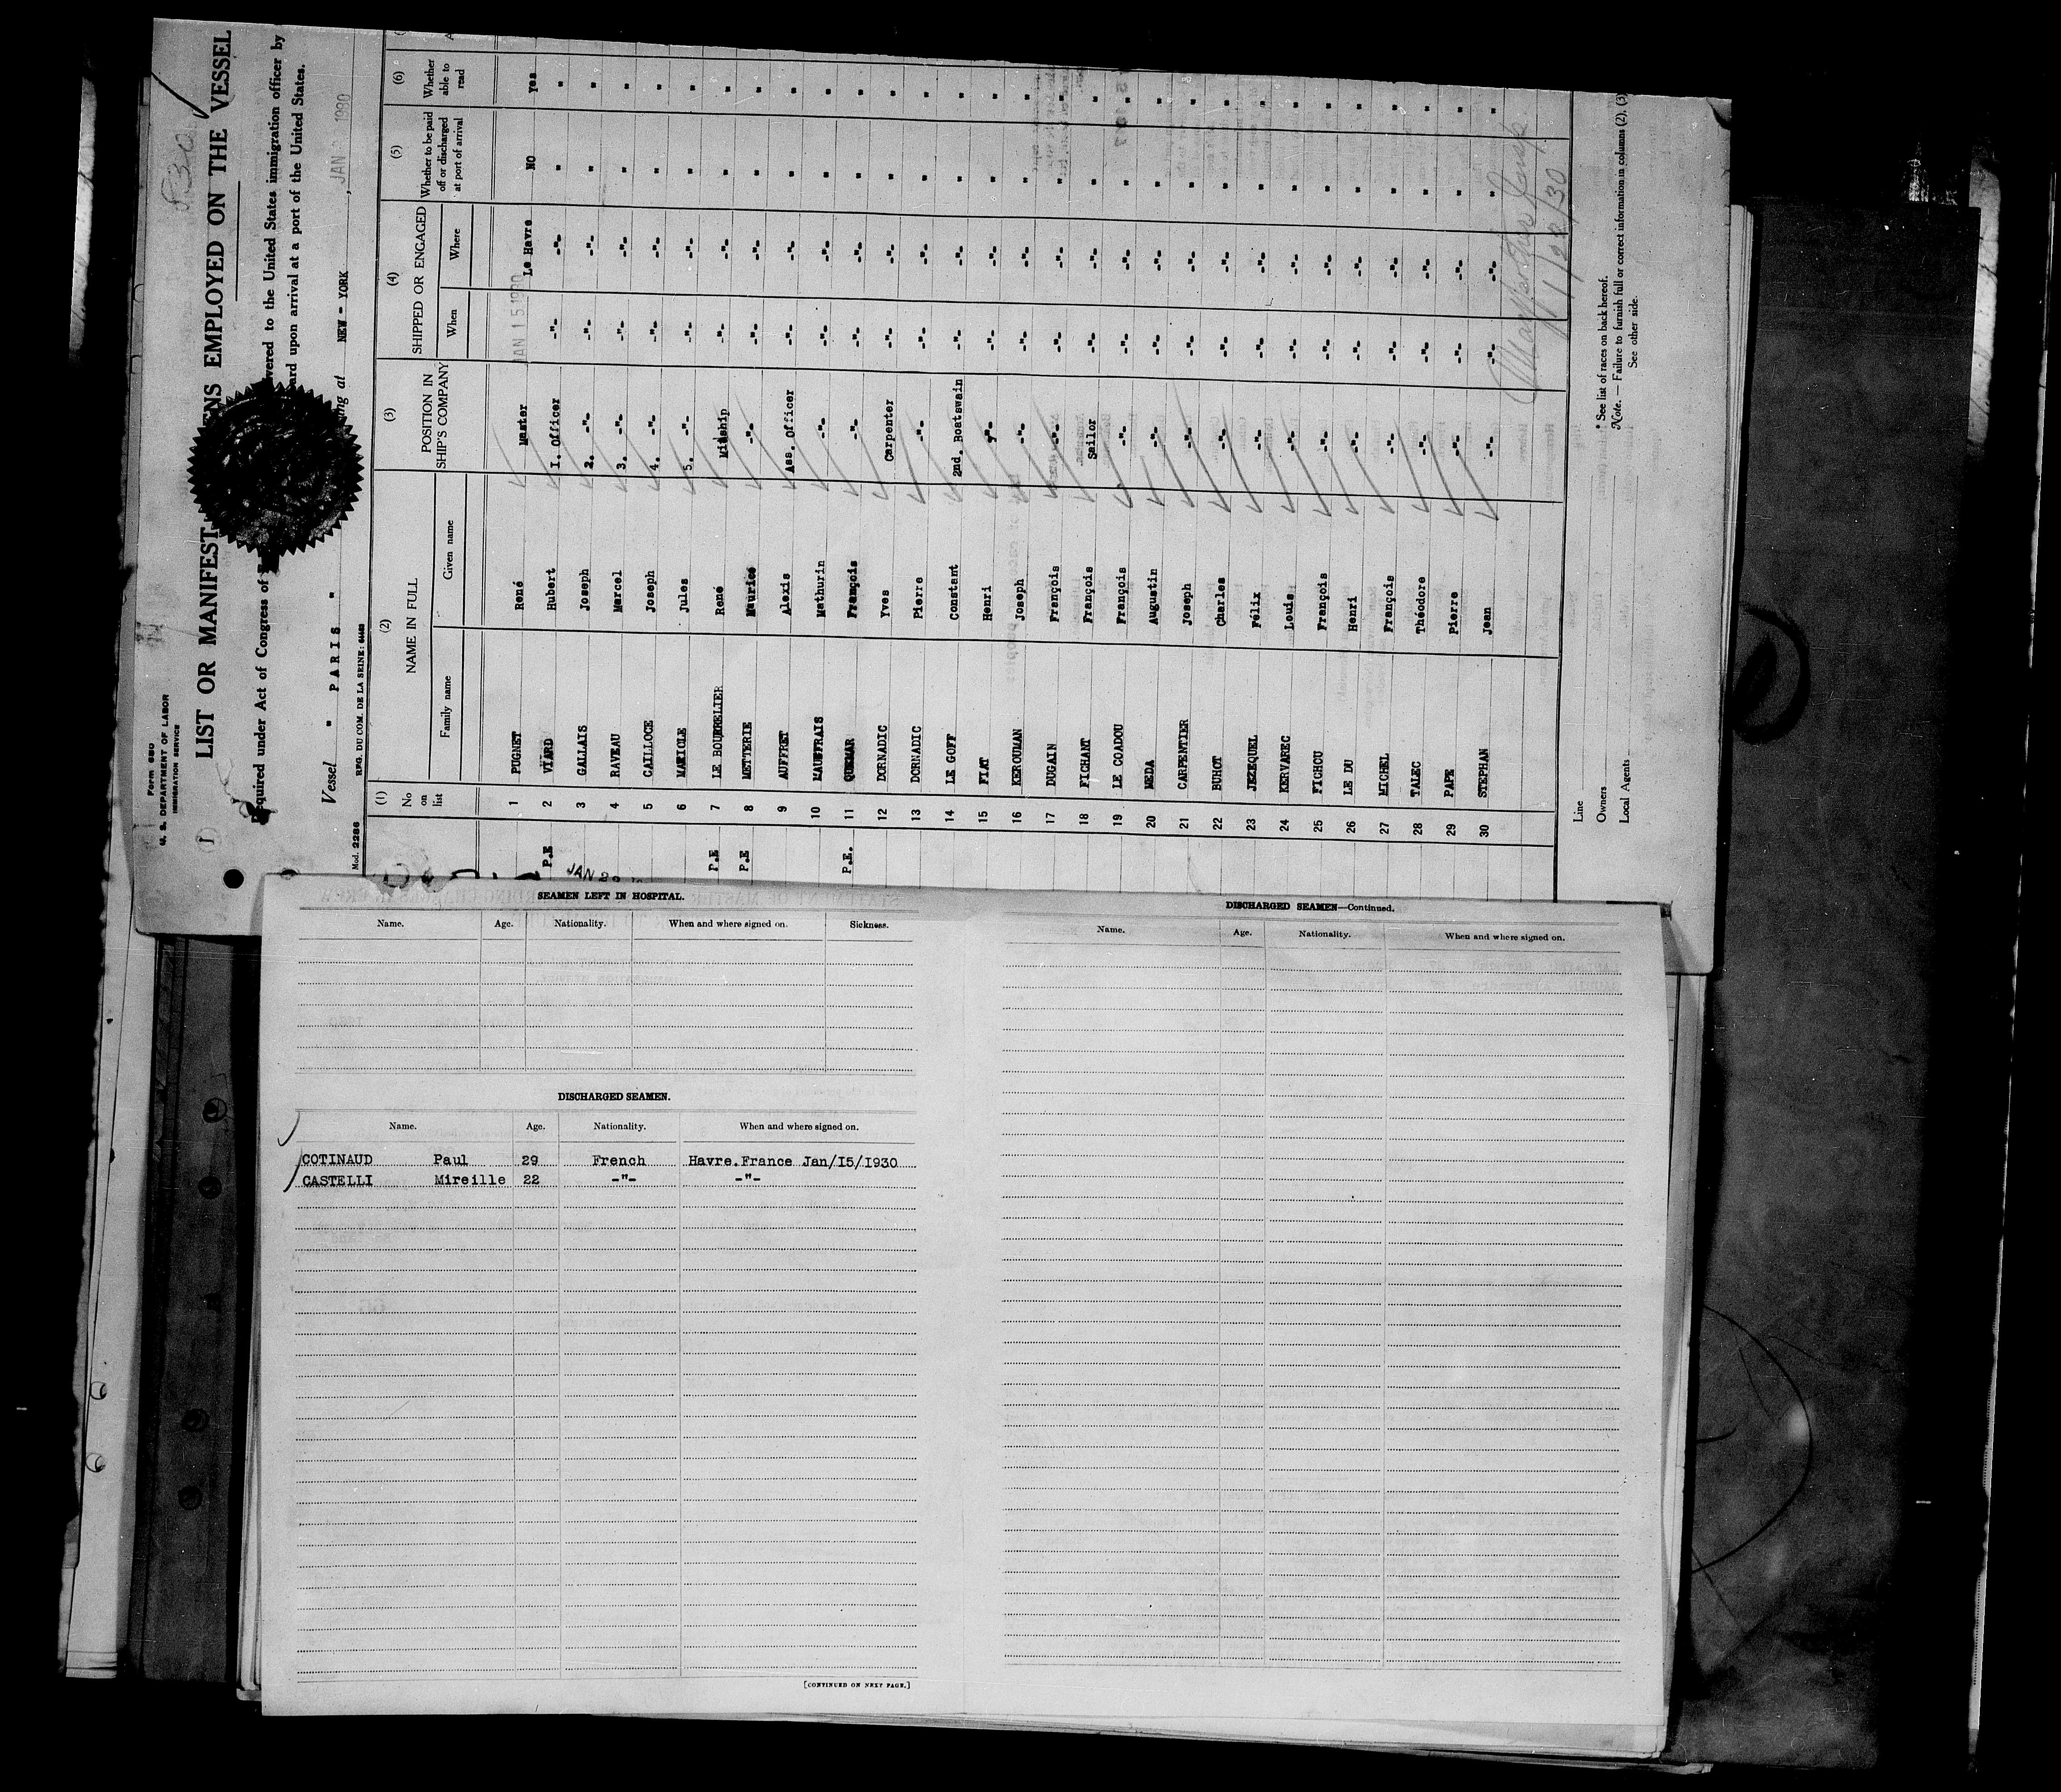 Form 680
U. S. DEPARTMENT OF LABOR
IMMIGRATION SERVICE
LIST OR MANIFEST ENS EMPLOYED ON THE VESSEL
quired under Act of Congress of vered to the United States immigration officer by
ard upon arrival at a port of the United States.
Vessel " PARIS " ing at NEW - YORK , JAN 1930
Mod. 2286 RFG. DU COM. DE LA SEINE:
(1) (2) (3) (4) (5) (6)
No on list NAME IN FULL POSITION IN SHIP'S COMPANY SHIPPED OR ENGAGED Whether to be paid off or discharged at port of arrival Whether able to read
Family name Given name When Where
1 PUGNET René Master JAN 15 1930 Le Havre NO Yes
P.E 2 VIARD Hubert I. Officer -"- -"- " "
3 GALLAIS Joseph 2. -"- -"- -"- " "
4 RAVEAU Marcel 3. -"- -"- -"- " "
5 CAILLOCE Joseph 4. -"- -"- -"- " "
6 Jules 5. -"- -"- -"- " "
P.E 7 LE BOURRELIER René Midship -"- -"- " "
P.E 8 METTERIE Maurice -"- -"- -"- " "
9 AUFFRET Alexis Ass. Officer -"- -"- " "
10 MAUFFRAIS Mathurin -"- -"- -"- " "
P.E. 11 QUEMAR François -"- -"- -"- " "
12 DORNADIC Yves Carpenter -"- -"- " "
13 DORNADIC Pierre -"- -"- -"- " "
14 LE GOFF Constant 2nd. Boatswain -"- -"- " "
15 FIAT Henri -"- -"- -"- " "
16 KEROUMAN Joseph -"- -"- -"- " "
17 DUGAIN François -"- -"- -"- " "
18 FICHANT François Sailor -"- -"- " "
19 LE COADOU François -"- -"- -"- " "
20 MEDA Augustin -"- -"- -"- " "
21 CARPENTIER Joseph -"- -"- -"- " "
22 BUHOT Charles -"- -"- -"- " "
23 JEZEQUEL Félix -"- -"- -"- " "
24 KERVAREC Louis -"- -"- -"- " "
25 FICHOU François -"- -"- -"- " "
26 LE DU Henri -"- -"- -"- " "
27 MICHEL François -"- -"- -"- " "
28 TALEC Théodore -"- -"- -"- " "
29 PAPE Pierre -"- -"- -"- " "
30 STEPHAN Jean -"- -"- -"- " "
1/22/30
Line
Owners
Local Agents
* See list of races on back hereof.
Note. — Failure to furnish full or correct information in columns (2), (3)
See other side.
SEAMEN LEFT IN HOSPITAL.
Name. Age. Nationality. When and where signed on. Sickness.
DISCHARGED SEAMEN.
Name. Age. Nationality. When and where signed on.
COTINAUD Paul 29 French Havre.France Jan/I5/I930
CASTELLI Mireille 22 -"- -"-
[CONTINUED ON NEXT PAGE.]
DISCHARGED SEAMEN—Continued.
Name. Age. Nationality. When and where signed on.